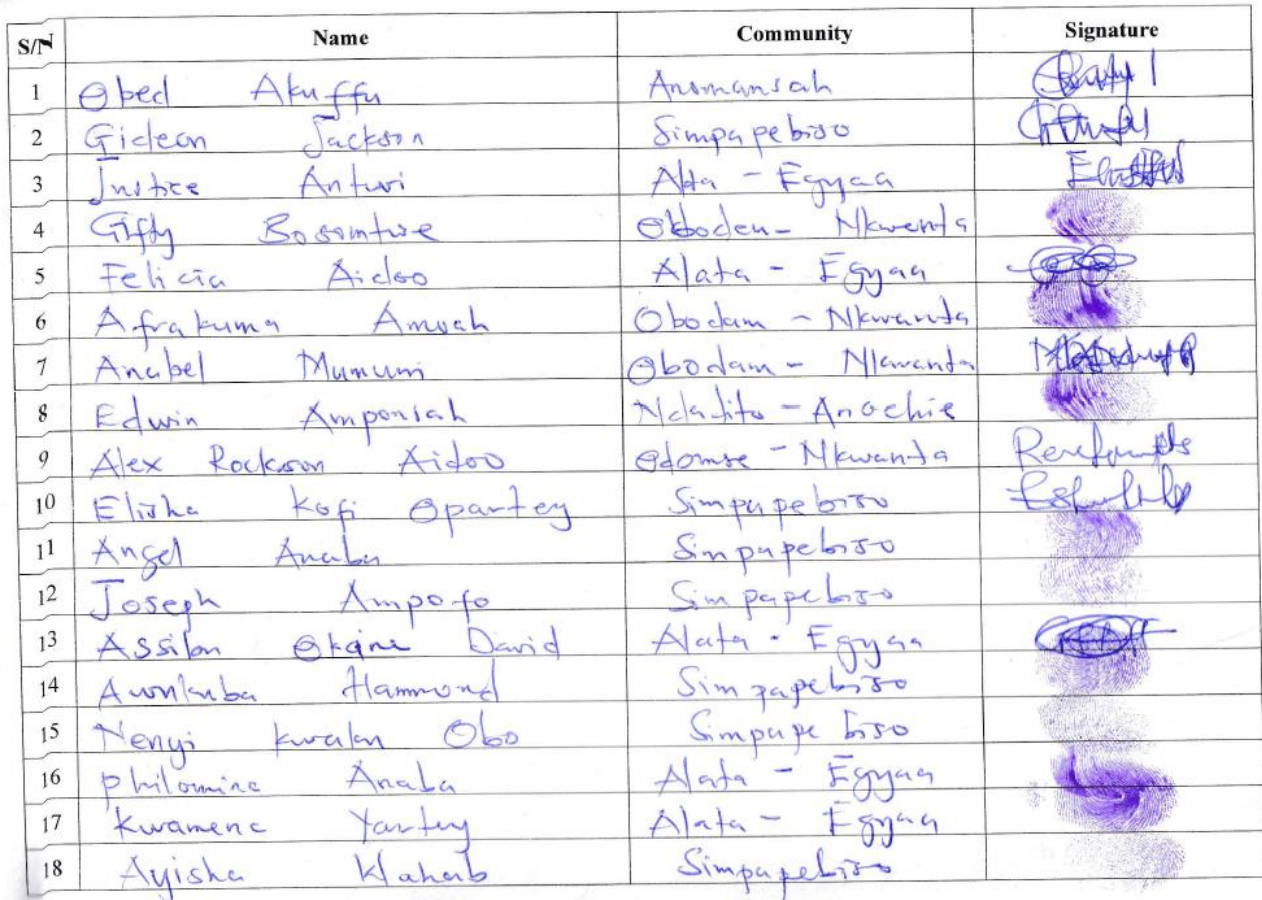 S/N Name Community Signature
1 Obed Akuffu Anomansah
2 Gideon Jackson Simpapebiso
3 Justice Antwi Alata - Egyaa
4 Gifty Bosomtwe Obboden - Nkwanta
5 Felicia Aidoo Alata - Egyaa
6 Afrakuma Amoah Obodam - Nkwanta
7 Anabel Mumuni Obodam - Nkwanta
8 Edwin Amponsah
9 Alex Rockson Aidoo Odomse - Nkwanta
10 Elisha Kofi Opartey Simpapebiso
11 Angel Anaba Simpapebiso
12 Joseph Ampofo Simpapebiso
13 Assilon Okaine David Alata - Egyaa
14 Hammond Simpapebiso
15 Nenyi Kwalan Obo Simpapebiso
16 Philomina Anaba Alata - Egyaa
17 Kwamena Yartey Alata - Egyaa
18 Ayisha Wahab Simpapebiso